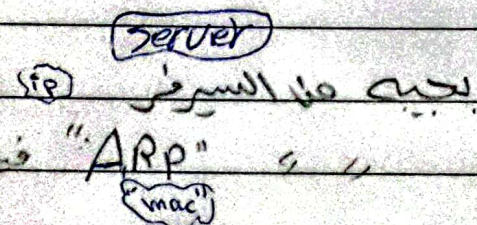 server
نجيبه من السيرفر sip
" " "ARP"
"mac"